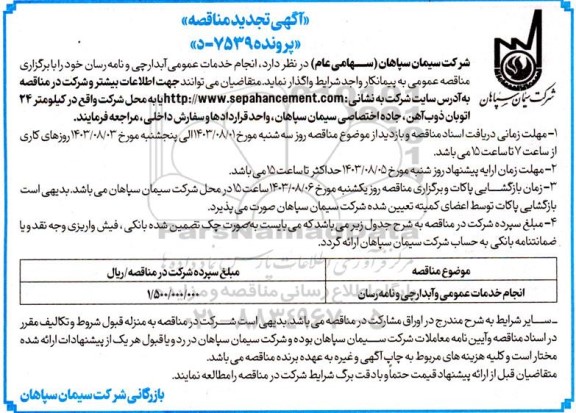 «آگهی تجدید مناقصه»
«پرونده ۷۵۳۹-د»
شرکت سیمان سپاهان
شرکت سیمان سپاهان (سـهامی عام) در نظر دارد، انجام خدمات عمومی آبدارچی و نامه رسان خود را با برگزاری
مناقصه عمومی به پیمانکار واجد شرایط واگذار نماید.متقاضیان می توانند جهت اطلاعات بیشتر و شرکت در مناقصه
به آدرس سایت شرکت به نشانی: http://www.sepahancement.com یا به محل شرکت واقع در کیلومتر ۲۴
اتوبان ذوب آهن ، جاده اختصاصی سیمان سپاهان ، واحد قراردادها و سفارش داخلی ، مراجعه فرمایند.
۱- مهلت زمانی دریافت اسناد مناقصه و بازدید از موضوع مناقصه روز سه شنبه مورخ ۱۴۰۳/۰۸/۰۱ الی پنجشنبه مورخ ۱۴۰۳/۰۸/۰۳ روزهای کاری
از ساعت ۷ تا ساعت ۱۵ می باشد.
۲- مهلت زمان ارایه پیشنهاد روز شنبه مورخ ۱۴۰۳/۰۸/۰۵ حداکثر تا ساعت ۱۵ می باشد.
۳- زمان بازگشـایی پاکات و برگزاری مناقصه روز یکشنبه مورخ ۱۴۰۳/۰۸/۰۶ ساعت ۱۵ در محل شرکت سیمان سپاهان می باشد. بدیهی است
بازگشایی پاکات توسط اعضای کمیته تعیین شده شرکت سیمان سپاهان صورت می پذیرد.
۴- مبلغ سپرده شرکت در مناقصه به شرح جدول زیر می باشد که می بایست به صورت چک تضمین شده بانکی ، فیش واریزی وجه نقد و یا
ضمانتنامه بانکی به حساب شرکت سیمان سپاهان ارائه گردد.
موضوع مناقصه مبلغ سپرده شرکت در مناقصه / ریال
انجام خدمات عمومی و آبدارچی و نامه رسان ۱/۵۰۰/۰۰۰/۰۰۰
ـ سـایر شرایط به شرح مندرج در اوراق مشارکت در مناقصه می باشد. بدیهی است شـرکت در مناقصه به منزله قبول شروط و تکالیف مقرر
در اسناد مناقصه و آیین نامه معاملات شرکت سـیمان سـپاهان بوده و شرکت سیمان سپاهان در رد و یا قبول هر یک از پیشنهادات ارائه شده
مختار است و کلیه هزینه های مربوط به چاپ آگهی و غیره به عهده برنده مناقصه می باشد.
متقاضیان قبل از ارائه پیشنهاد قیمت حتماً و با دقت برگ شرایط شرکت در مناقصه را مطالعه نمایند.
بازرگانی شرکت سیمان سپاهان